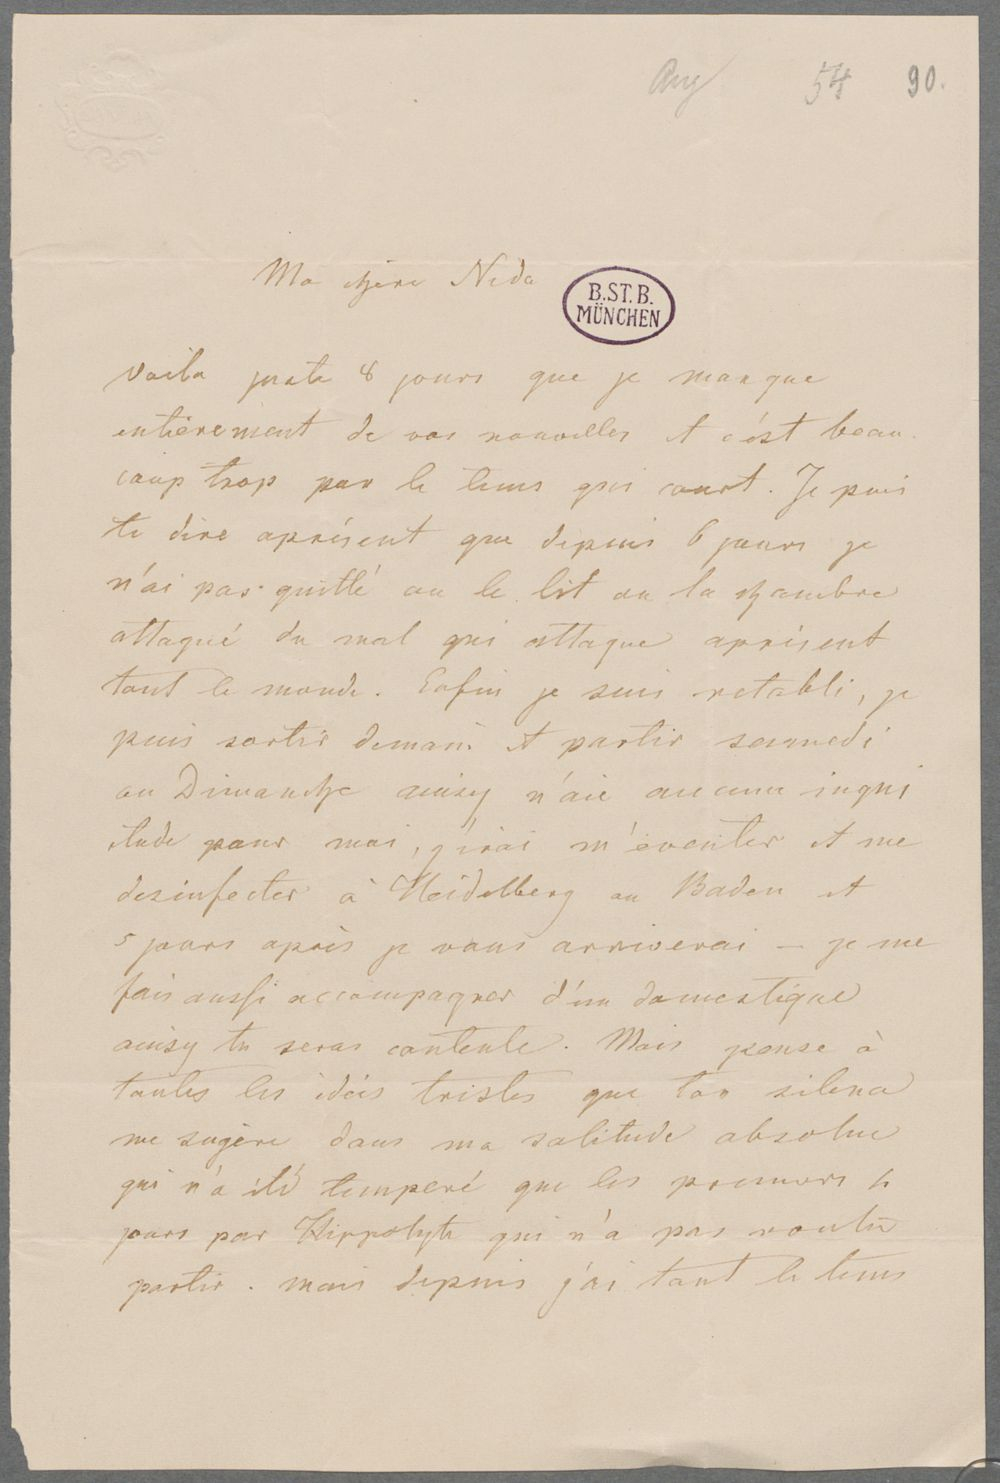 Aug 54 90.
Ma chère Nida
B.ST.B.
MÜNCHEN
Voila juste 8 jours que je manque
entièrement de vos nouvelles et c'ést beau-
coup trop par le tems qui court. Je puis
te dire aprésent que depuis 6 jours je
n'ai pas quitté ou le lit ou la chambre
attaqué du mal qui attaque aprésent
tout le monde. Enfin je suis retabli, je
puis sortir demain et partir samedi
ou Dimanche ainsy n'aie aucune inqui
etude pour moi, j'irai m'éventer et me
desinfecter à Heidelberg ou Baden et
5 jours après je vous arriverai – je me
fais aussi accompagner d'un domestique
ainsy tu seras contente. Mais pense à
toutes les idées tristes que ton silence
me sugère dans ma solitude absolue
qui n'a été temperé que les premiers 4
jours par Hippolyte qui n'a pas voulu
partir. mais depuis j'ai tout le tems